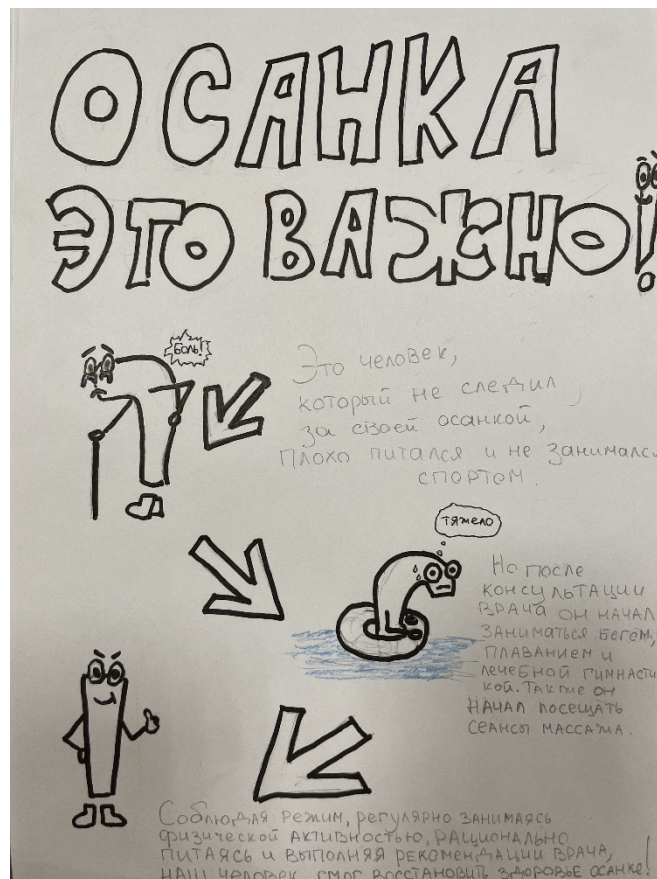 ОСАНКА
ЭТО ВАЖНО!
Боль!
Это человек,
который не следил
за своей осанкой,
плохо питался и не занимался
спортом.
тяжело
Но после
консультации
врача он начал
заниматься бегом,
плаванием и
лечебной гимнасти
кой. Также он
начал посещать
сеансы массажа.
Соблюдая режим, регулярно занимаясь
физической активностью, рационально
питаясь и выполняя рекомендации врача,
наш человек смог восстановить здоровье осанке!